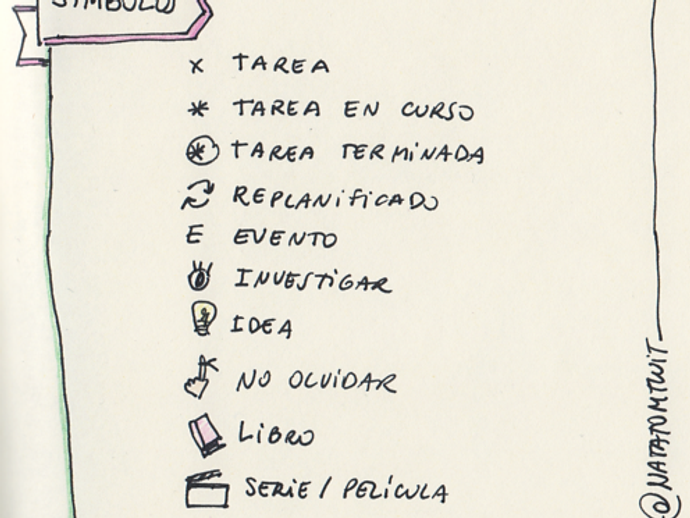 SÍMBOLOS
x TAREA
* TAREA EN CURSO
TAREA TERMINADA
REPLANIFICADO
E EVENTO
INVESTIGAR
IDEA
NO OLVIDAR
LIBRO
SERIE / PELÍCULA
@NATATOMTWIT